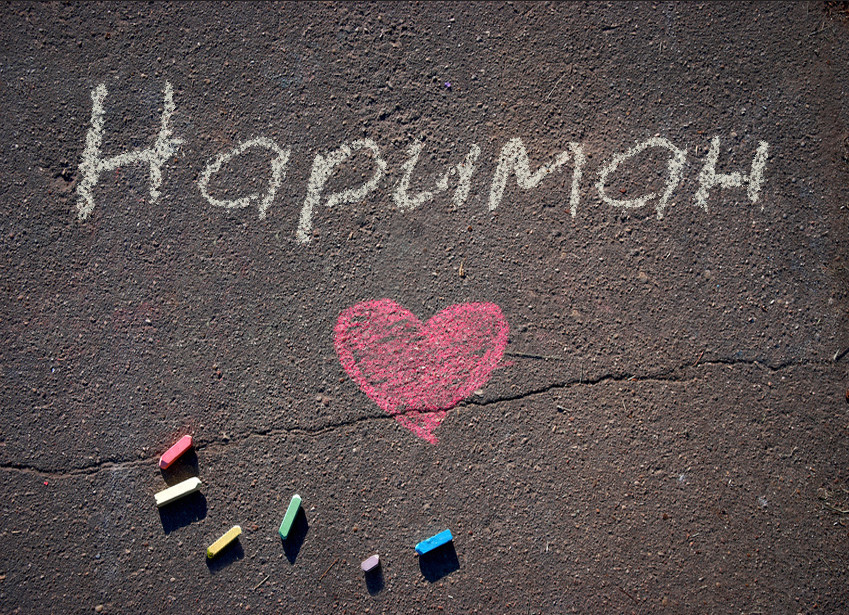 Нариман